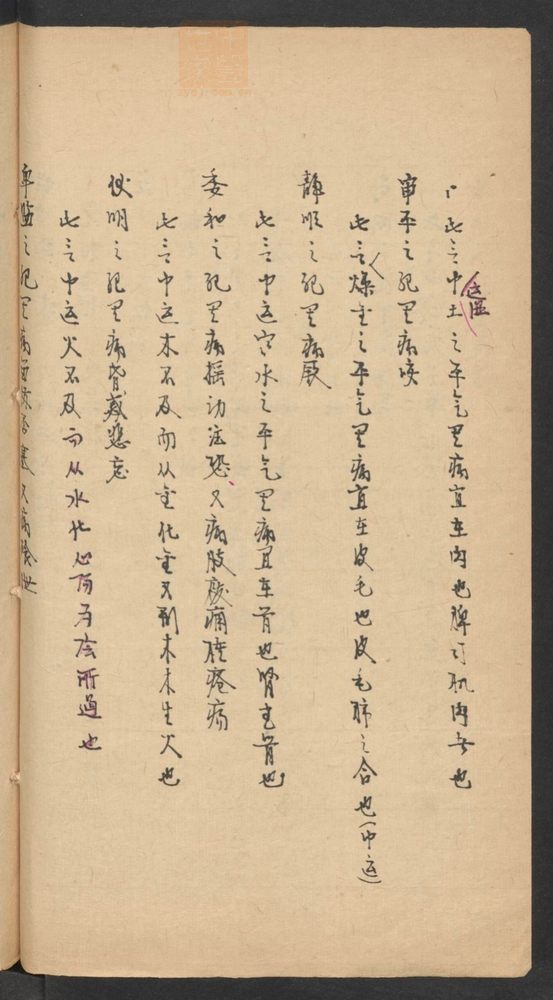 此言中土之平气里病宜在肉也脾主肌肉者也
运湿
审平之纪里病咳
此言燥金之平气里病宜在皮毛也皮毛肺之合也
中运
静顺之纪里病厥
此言中运寒水之平气里病宜在骨也肾主骨也
委和之纪里病摇动注恐又病肢废痈肿疮疡
此言中运木不及而从金化金又刑木木生火也
伏明之纪里病昏惑悲忘
此言中运火不及而从水化心阳为阴所遏也
卑监之纪里病 否塞又病飧泄